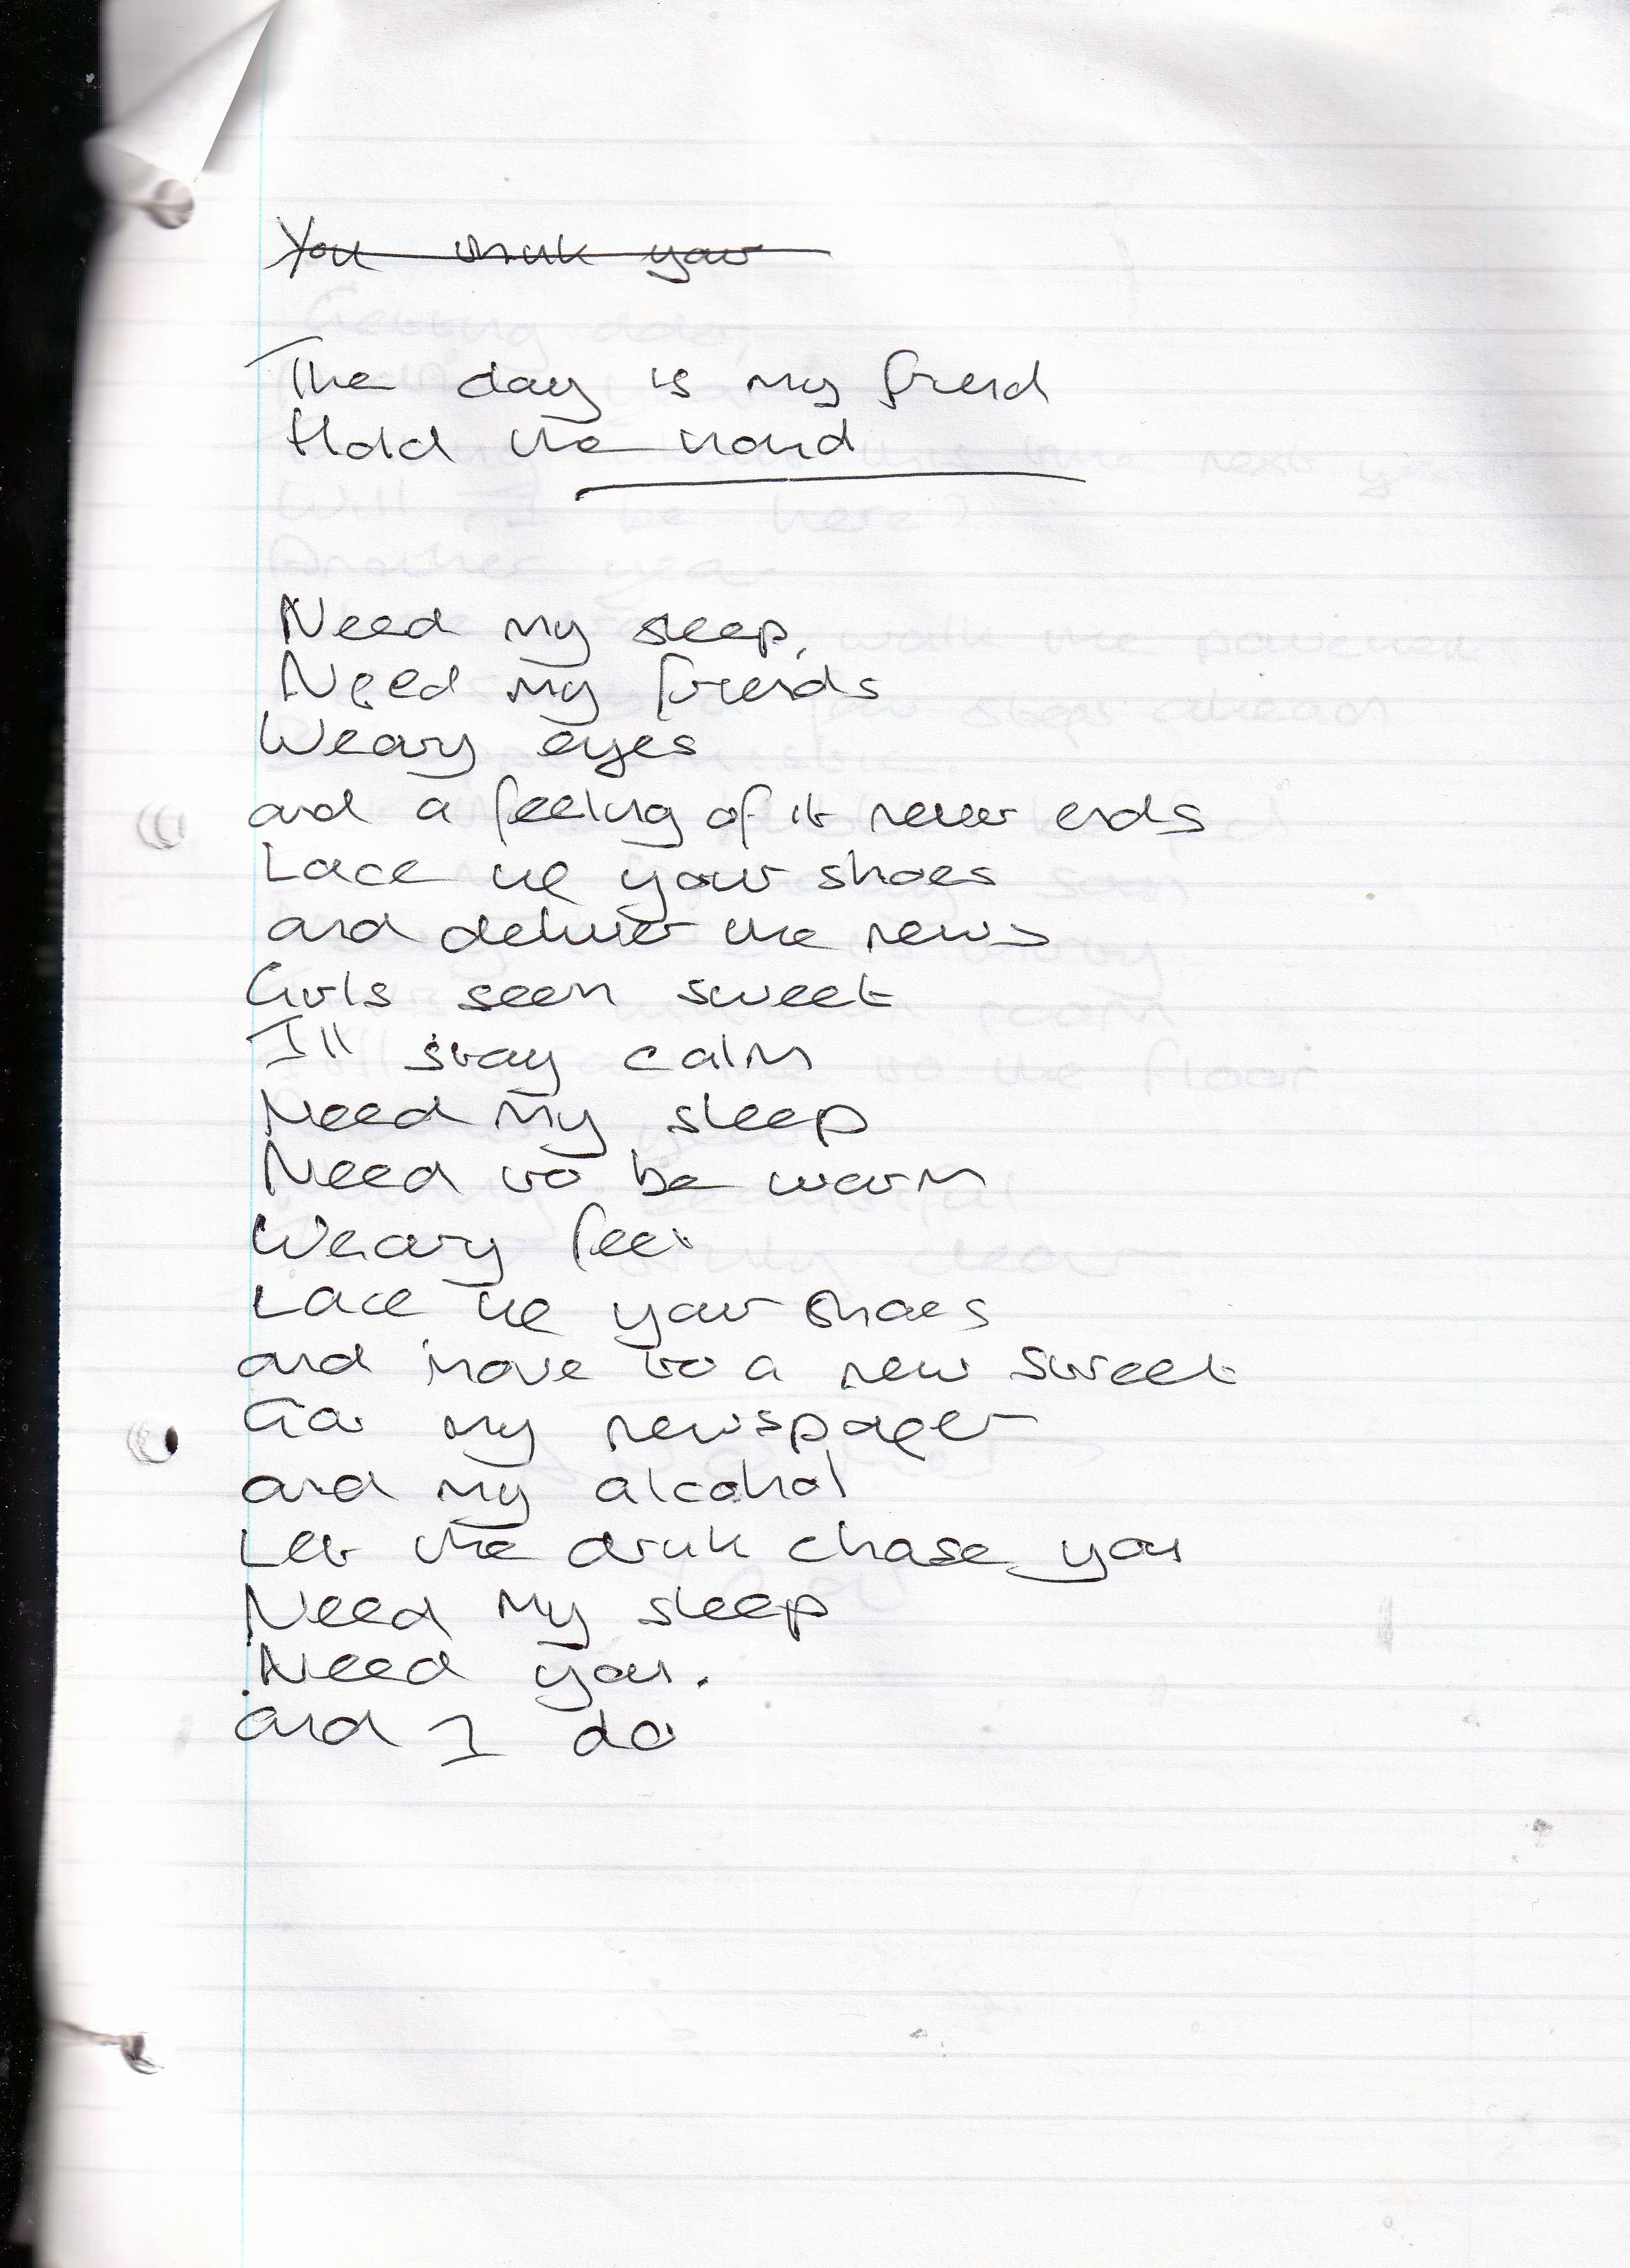 You think your
The day is my friend
Hold the hand
Need my sleep,
Need my friends
Weary eyes
and a feeling of it never ends
Lace up your shoes
and deliver the news
Girls seem sweet
I'll stay calm
Need my sleep
Need to be warm
Weary feet
Lace up your shoes
and move to a new street
Got my newspaper
and my alcohol
Let the drink chase you
Need my sleep
Need you.
and I do